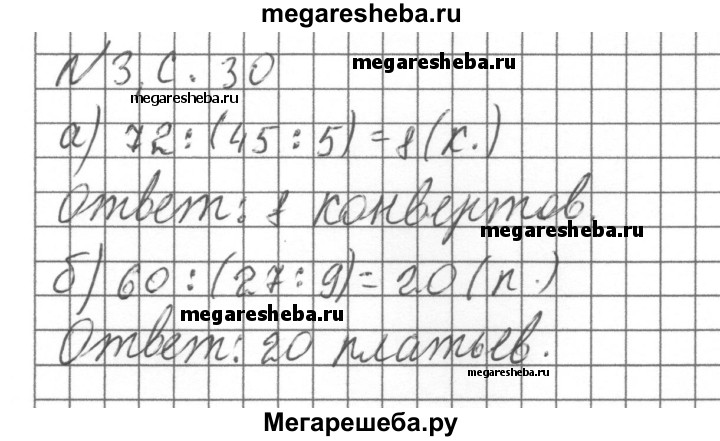 megaresheba.ru
N 3, С. 30
megaresheba.ru
megaresheba.ru
а) 72 : (45 : 5) = 8 (к.)
Ответ: 8 конвертов.
megaresheba.ru
б) 60 : (27 : 9) = 20 (п.)
megaresheba.ru
Ответ: 20 платьев.
megaresheba.ru
Мегарешеба.ру